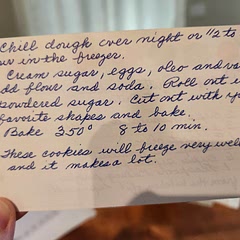 Chill dough over night or 1/2 to
in the freezer.
Cream sugar, eggs, oleo and
flour and soda. Roll out
powdered sugar. Cut out with
favorite shapes and bake.
Bake 350° 8 to 10 min.
These cookies will freeze very well
and it makes a lot.